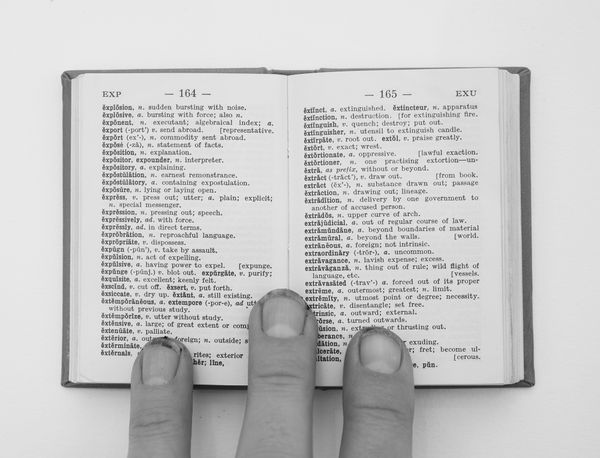 EXP — 164 —
explōsion, n. sudden bursting with noise.
explōsive, a. bursting with force; also n.
expōnent, n. executant; algebraical index; a.
export (-port') v. send abroad. [representative.
export (ex'-), n. commodity sent abroad.
expōsé (-zā), n. statement of facts.
expōsition, n. explanation.
expōsitor, expounder, n. interpreter.
expōsitory, a. explaining.
expōstūlātion, n. earnest remonstrance.
expōstūlātory, a. containing expostulation.
expōsūre, n. lying or laying open.
exprĕss, v. press out; utter; a. plain; explicit;
n. special messenger.
exprĕssion, n. pressing out; speech.
exprĕssively, ad. with force.
exprĕssly, ad. in direct terms.
exprōbrātion, n. reproachful language.
exprōpriāte, v. dispossess.
expūgn (-pūn'), v. take by assault.
expŭlsion, n. act of expelling.
expŭlsive, a. having power to expel. [expunge.
expŭnge (-punj.) v. blot out. expûrgāte, v. purify;
exquisite, a. excellent; keenly felt.
exscīnd, v. cut off. exsert, v. put forth.
exsiccate, v. dry up. extănt, a. still existing.
extĕmpōrāneous, a. extempore (-por-e), ad utter
without previous study.
extĕmpōrīze, v. utter without study.
extĕnsive, a. large; of great extent or
extĕnūāte, v. palliate.
extĕrior, a. foreign; n. outside;
extĕrmināte,
extĕrnals, rites; exterior
līne,
— 165 — EXU
extīnct, a. extinguished. extincteur, n. apparatus
extīnction, n. destruction. [for extinguishing fire.
extīnguish, v. quench; destroy; put out.
extīnguisher, n. utensil to extinguish candle.
extīrpāte, v. root out. extōl, v. praise greatly.
extōrt, v. exact; wrest.
extōrtionate, a. oppressive. [lawful exaction.
extōrtioner, n. one practising extortion—un-
extra, as prefix, without or beyond.
extrāct (-trăct'), v. draw out. [from book.
extrāct (ĕx'-), n. substance drawn out; passage
extrāction, n. drawing out; lineage.
extrădītion, n. delivery by one government to
another of accused person.
extrădōs, n. upper curve of arch.
extrājūdicial, a. out of regular course of law.
extrāmŭndāne, a. beyond boundaries of material
extrāmūral, a. beyond the walls. [world.
extrāneous, a. foreign; not intrinsic.
extraordinary (-trōr-), a. uncommon.
extrăvagance, n. lavish expense; excess.
extrăvagānza, n. thing out of rule; wild flight of
language, etc. [vessels.
extrăvasāted (-trav'-) a. forced out of its proper
extrēme, a. outermost; greatest; n. limit.
extrĕmity, n. utmost point or degree; necessity.
extricāte, v. disentangle; set free.
intrinsic, a. outward; external.
rōrse, a. turned outwards.
ūsion, n. or thrusting out.
berance, n.
dātion, or exuding.
ulcerāte, fret; become ul-
ultation, [cerous.
pūn.